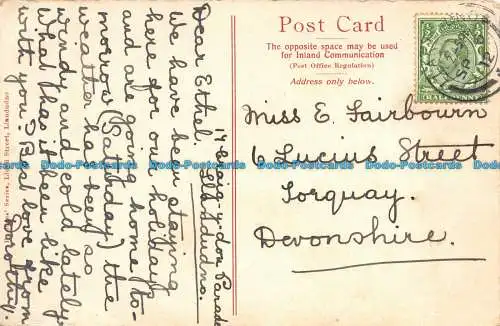 Post Card
The opposite space may be used
for Inland Communication
(Post Office Regulation)
Address only below.
Miss E. Fairbourn
6 Lucius Street
Torquay.
Devonshire.
17 Craig-y-don Parade
Llandudno.
Dear Ethel
We have been staying
here for our holidays
are going home to-
morrow (Saturday) the
weather has been so
windy and cold lately
What has it been like
with you? Best love from
Dorothy.
Series, Lloyd Street, Llandudno
Dodo-Postcards Dodo-Postcards Dodo-Postcards Dodo-Postcards Dodo-Postcards